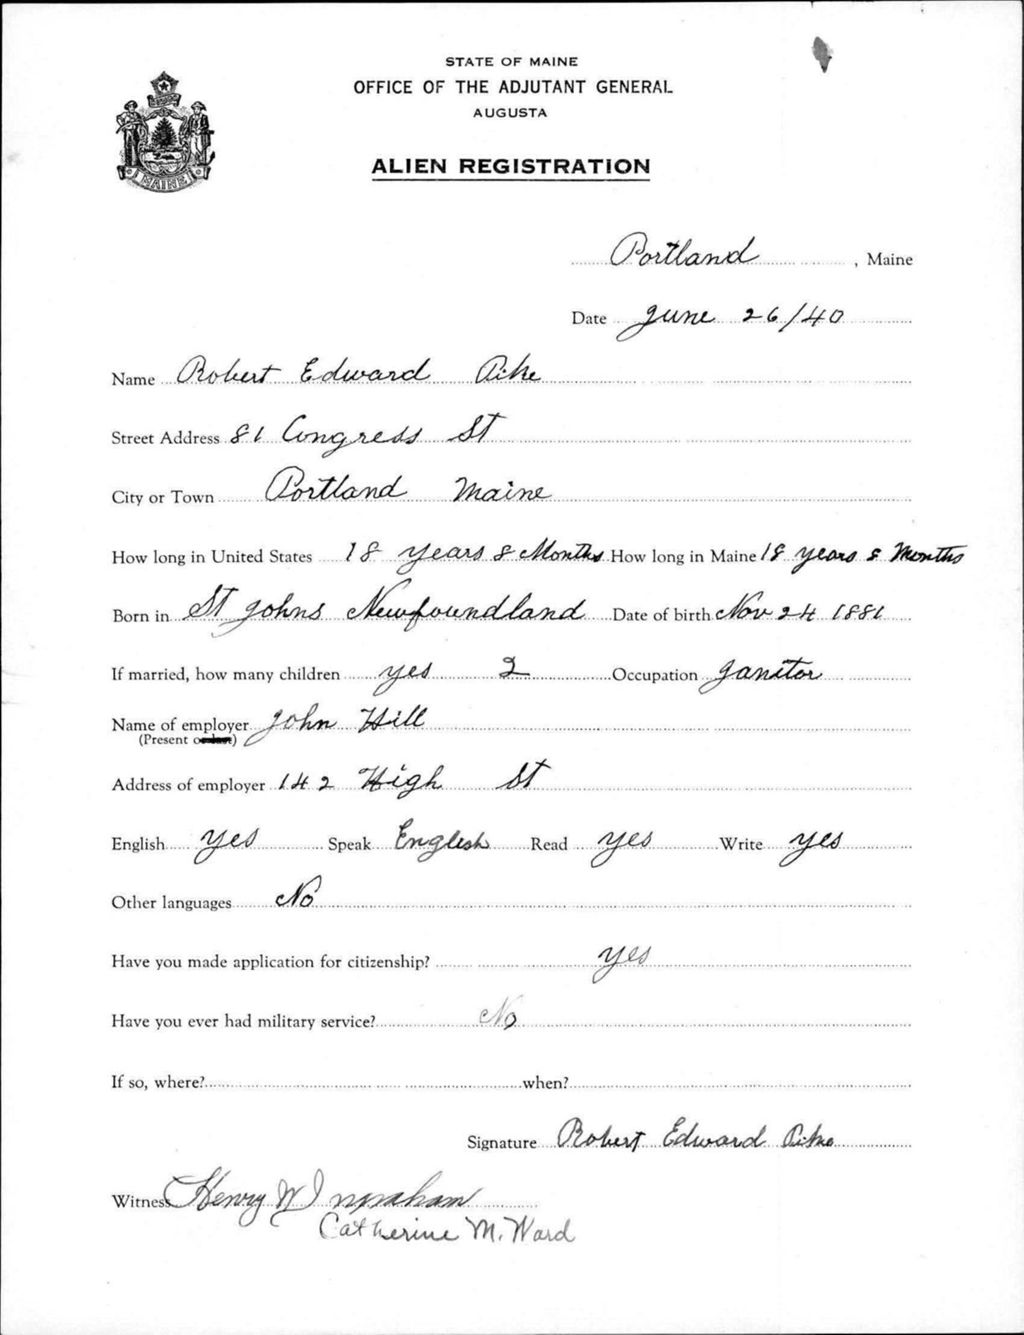 STATE OF MAINE
OFFICE OF THE ADJUTANT GENERAL
AUGUSTA
MAINE
ALIEN REGISTRATION
Portland, Maine
Date June 26/40
Name Robert Edward Pike
Street Address 81 Congress St
City or Town Portland Maine
How long in United States 18 years 8 Months How long in Maine 18 years 8 Months
Born in St Johns Newfoundland Date of birth Nov 24 1881
If married, how many children yes 2 Occupation Janitor
Name of employer John Hill
(Present or last)
Address of employer 142 High St
English yes Speak English Read yes Write yes
Other languages No
Have you made application for citizenship? yes
Have you ever had military service? No
If so, where? when?
Signature Robert Edward Pike
Witness Henry W Ingraham
Catherine M. Ward